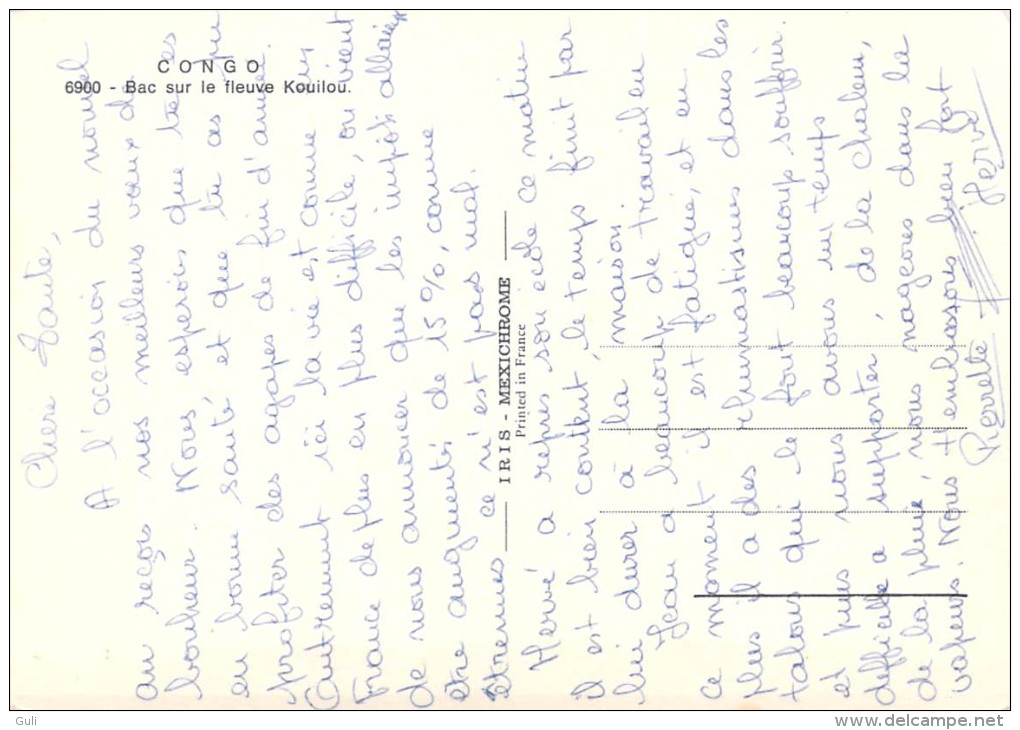 CONGO
6900 - Bac sur le fleuve Kouilou.
Chère Tante,
A l'occasion du nouvel
an reçois nos meilleurs vœux de
bonheur. Nous esperois que tu es
en bonne santé et que tu as pu
profiter des agapes de fin d'année.
Autrement ici la vie est comme en
France de plus en plus difficile, on vient
de nous annoncer que les impôts allaient
être augmentés de 15%, comme
étrennes ce n'est pas mal.
Hervé a repris son ecole ce matin
il est bien content, le temps finit par
lui durer à la maison
Jean a beaucoup de travail en
ce moment il est fatigué, et en
plus il a des rhumatismes dans les
talons qui le font beaucoup souffrir.
et puis nous avons un temps
difficile a supporter, de la chaleur,
de la pluie, nous nageons dans la
vapeur. Nous t'embrassons bien fort
Pierrette Hervé
IRIS - MEXICHROME
Printed in France
Guli
www.delcampe.net